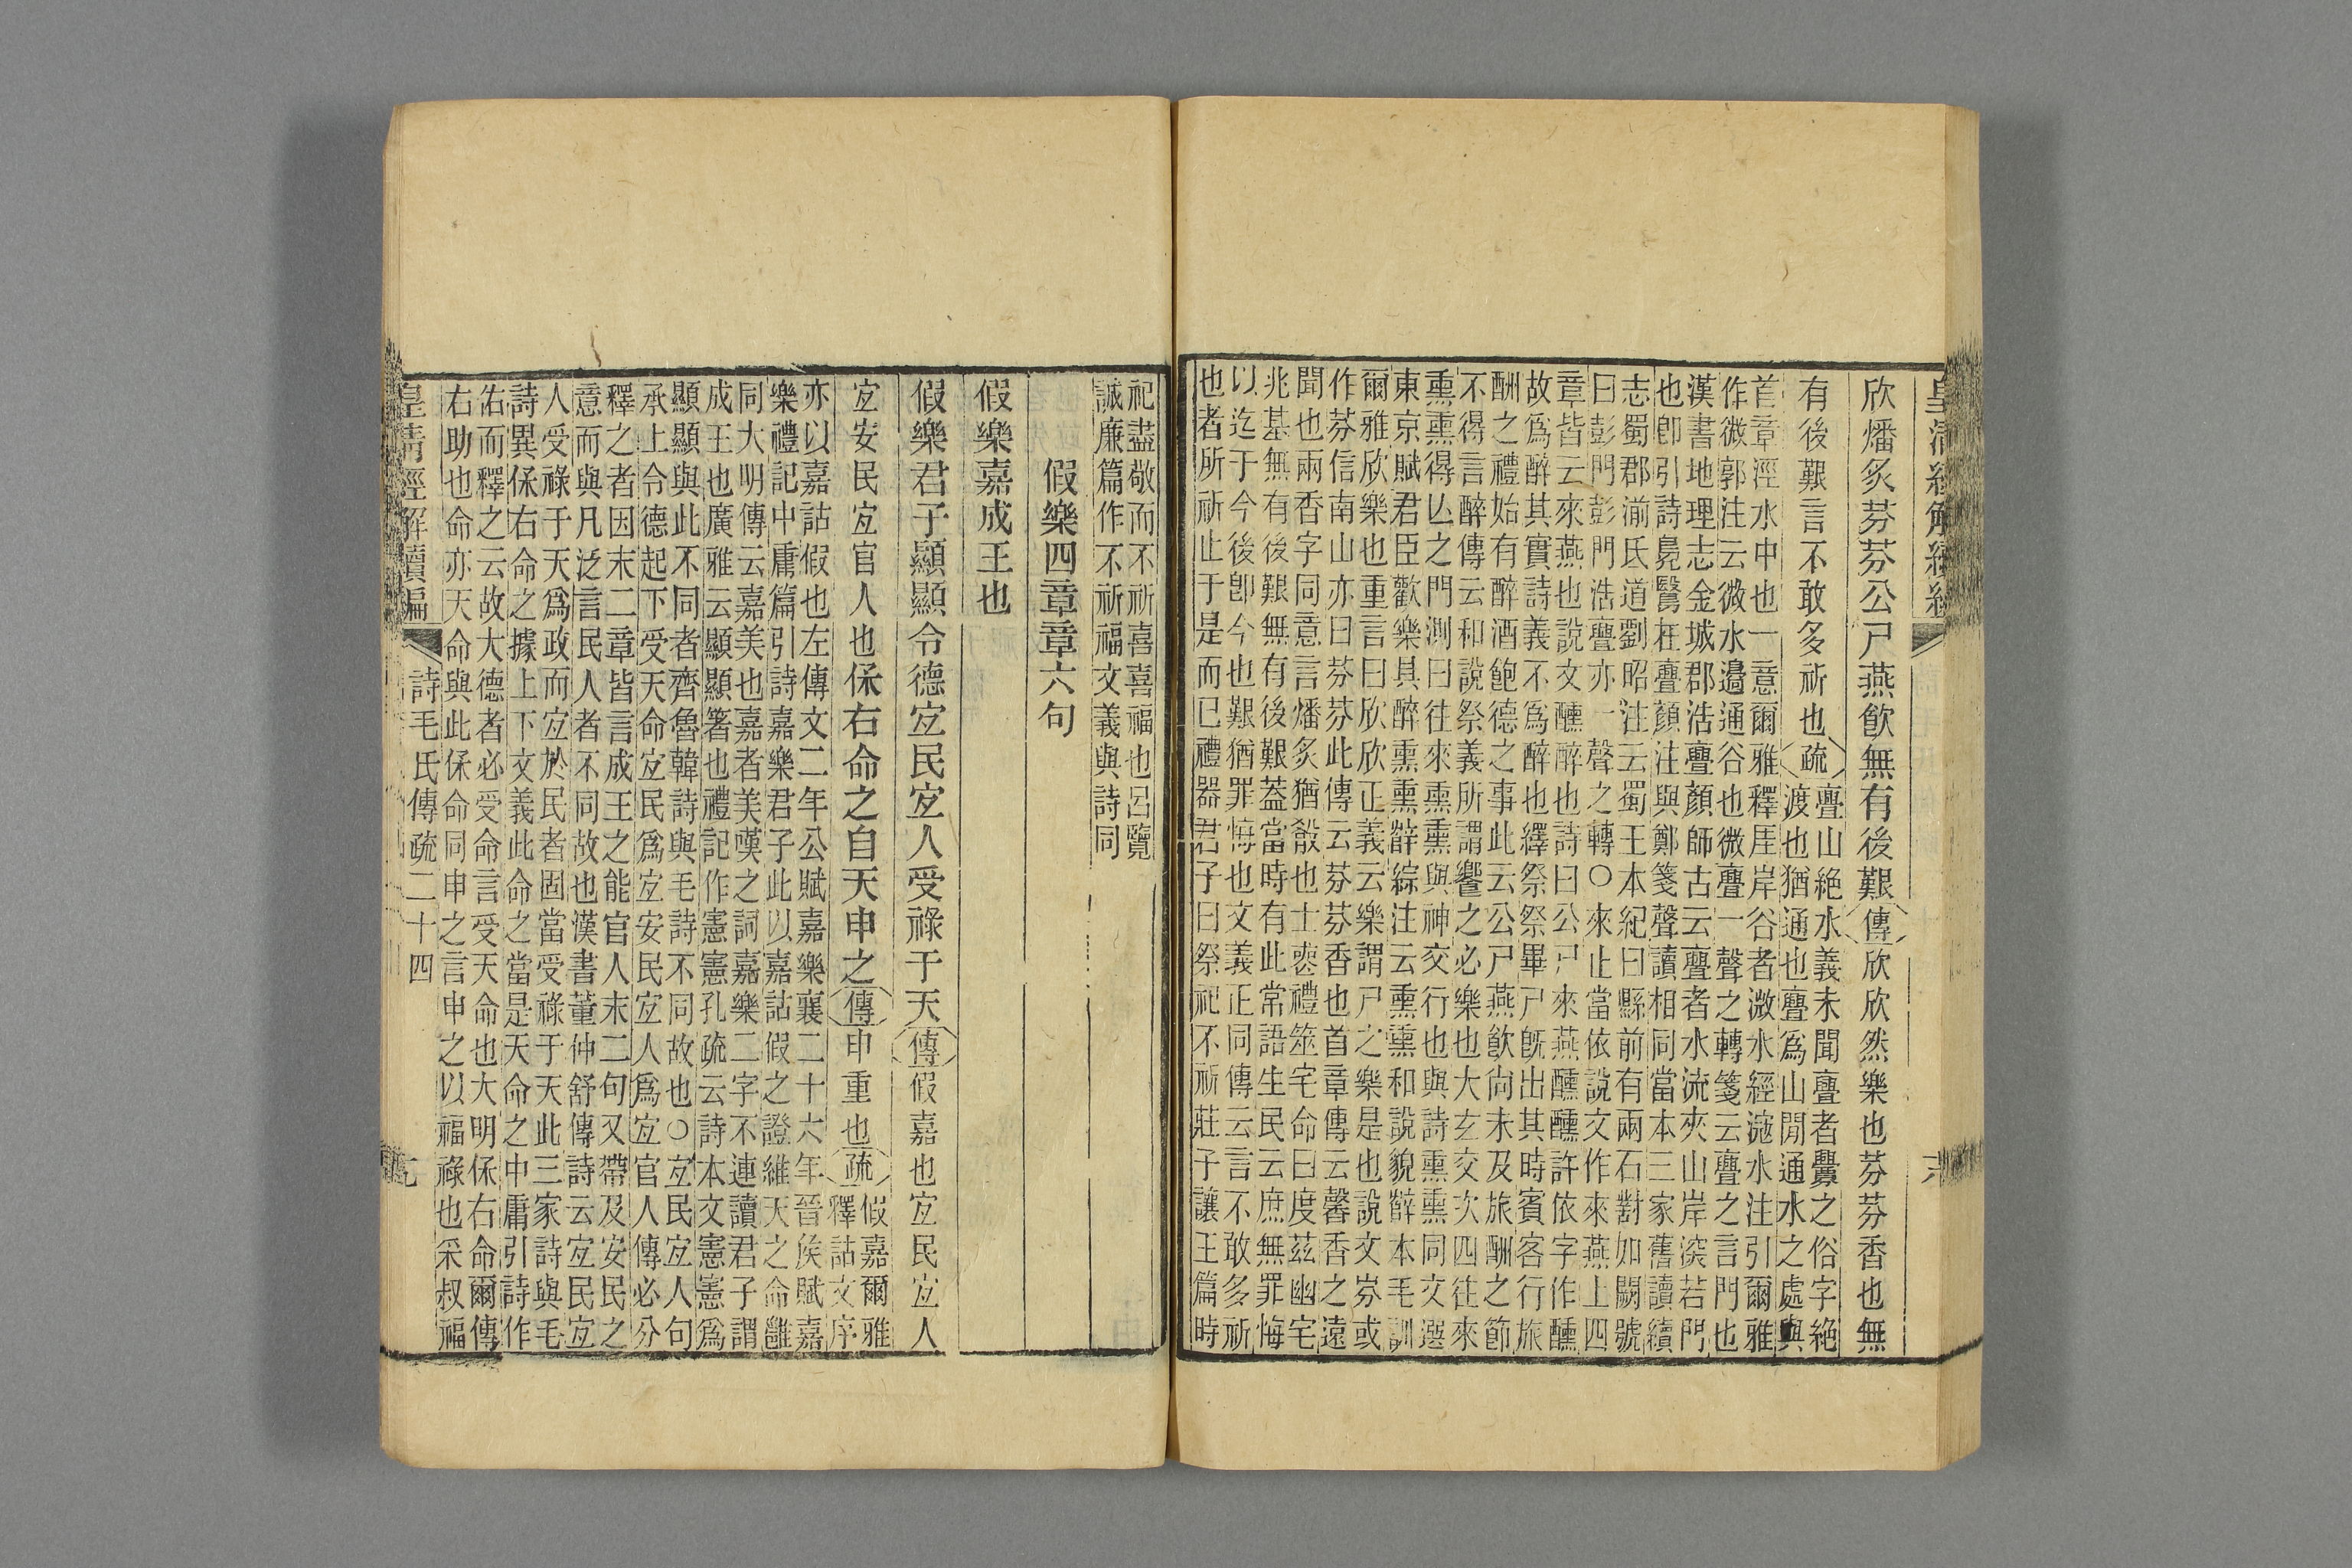 皇清經解續編
欣燔炙芬芬公尸燕飮無有後艱傳欣欣然樂也芬芬香也無
有後艱言不敢多祈也疏
亹山絶水義未聞亹者釁之俗字絶
渡也猶通也亹爲山閒通水之處與
首章涇水中也一意爾雅釋厓岸谷者溦水經㵝水注引爾雅
作微郭注云微水邉通谷也微亹一聲之轉箋云亹之言門也
漢書地理志金城郡浩亹顏師古云亹者水流夾山岸深若門
也卽引詩鳧鷖在亹顏注與鄭箋聲讀相同當本三家舊讀續
志蜀郡湔氐道劉昭注云蜀王本紀曰縣前有兩石對如闕號
曰彭門彭門浩亹亦一聲之轉○來止當依說文作來燕上四
章皆云來燕也說文醺醉也詩曰公尸來燕醺醺許依字作醺
故爲醉其實詩義不爲醉也繹祭祭畢尸旣出其時賓客行旅
酬之禮始有醉酒飽德之事此云公尸燕飮尙未及旅酬之節
不得言醉傳云和說祭義所謂饗之必樂也大玄交次四往來
熏熏得亾之門測曰往來熏熏與神交行也與詩熏熏同文選
東京賦君臣歡樂其醉熏熏辥綜注云熏熏和說貌辥本毛訓
爾雅欣樂也重言曰欣欣正義云樂謂尸之樂是也說文芬或
作芬信南山亦曰芬芬此傳云芬芬香也首章傳云馨香之遠
聞也兩香字同意言燔炙猶殽也士喪禮筮宅命曰度茲幽宅
兆基無有後艱無有後艱蓋當時有此常語生民云庶無罪悔
以迄于今後卽今也艱猶罪悔也文義正同傳云言不敢多祈
也者所祈止于是而已禮器君子曰祭祀不祈莊子讓王篇時
祀盡敬而不祈喜喜福也呂覽
誠廉篇作不祈福文義與詩同
假樂四章章六句
假樂嘉成王也
假樂君子顯顯令德宐民宐人受祿于天傳假嘉也宐民宐人
宐安民宐官人也保右命之自天申之傳申重也疏
假嘉爾雅
釋詁文序
亦以嘉詁假也左傳文二年公賦嘉樂襄二十六年晉侯賦嘉
樂禮記中庸篇引詩嘉樂君子此以嘉詁假之證維天之命雝
同大明傳云嘉美也嘉者美嘆之詞嘉樂二字不連讀君子謂
成王也廣雅云顯顯箸也禮記作憲憲孔疏云詩本文憲憲爲
顯顯與此不同者齊魯韓詩與毛詩不同故也○宐民宐人句
承上令德起下受天命宐民爲宐安民宐人爲宐官人傳必分
釋之者因末二章皆言成王之能官人末二句又帶及安民之
意而與凡泛言民人者不同故也漢書董仲舒傳詩云宐民宐
人受祿于天爲政而宐於民者固當受祿于天此三家詩與毛
詩異保右命之據上下文義此命之當是天命之中庸引詩作
佑而釋之云故大德者必受命言受天命也大明保右命爾傳
右助也命亦天命與此保命同申之言申之以福祿也采叔福
皇清經解續編
詩毛氏傳疏二十四